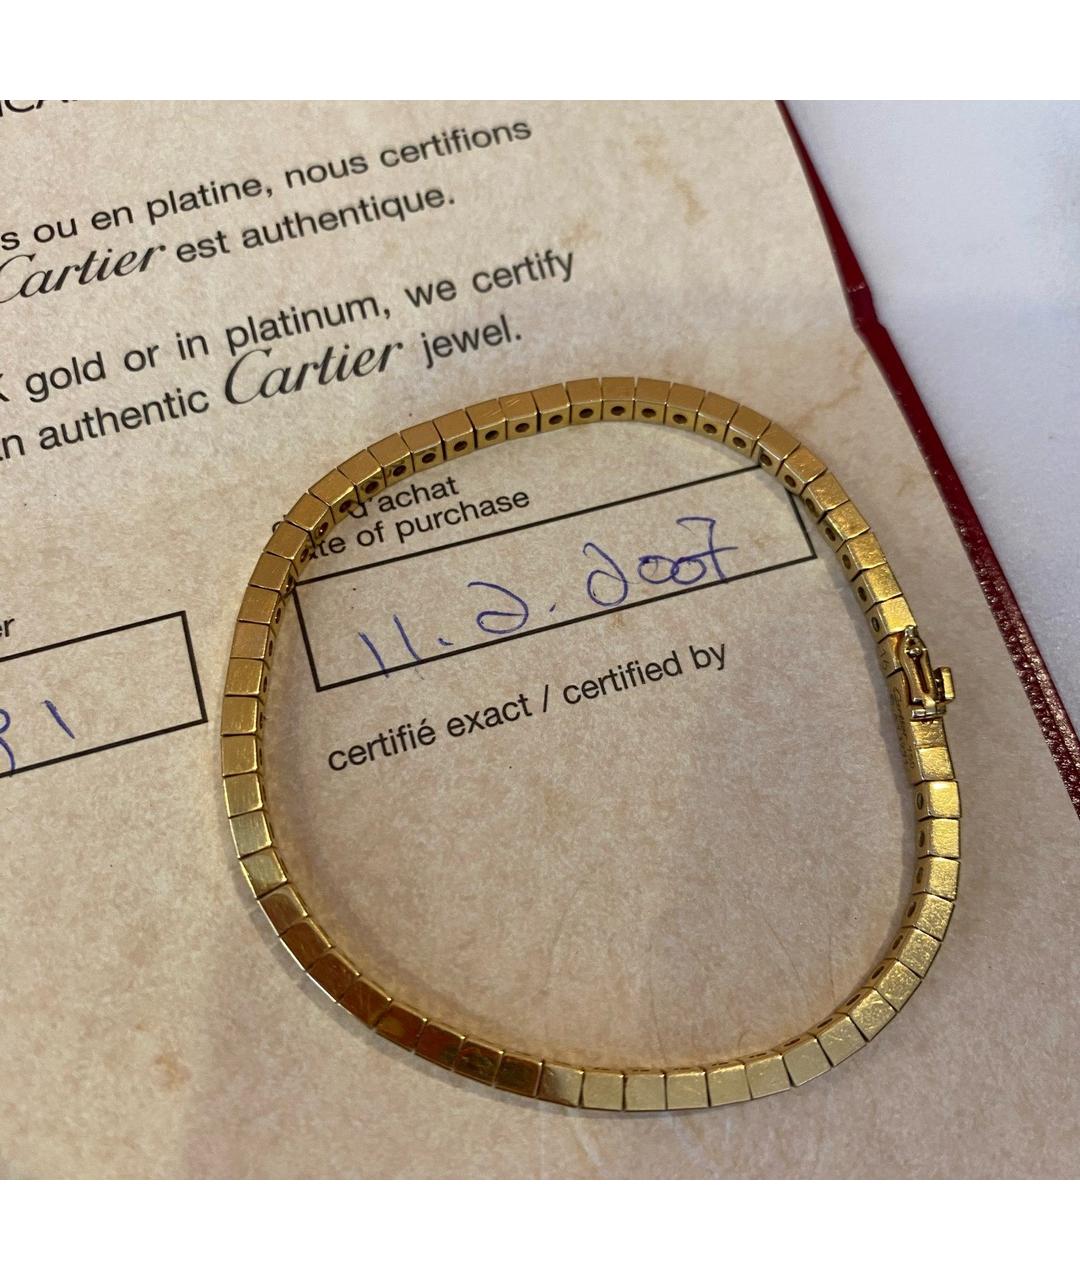 s ou en platine, nous certifions
Cartier est authentique.
gold or in platinum, we certify
authentic Cartier jewel.
d'achat
of purchase
11.2.2007
certifié exact / certified by